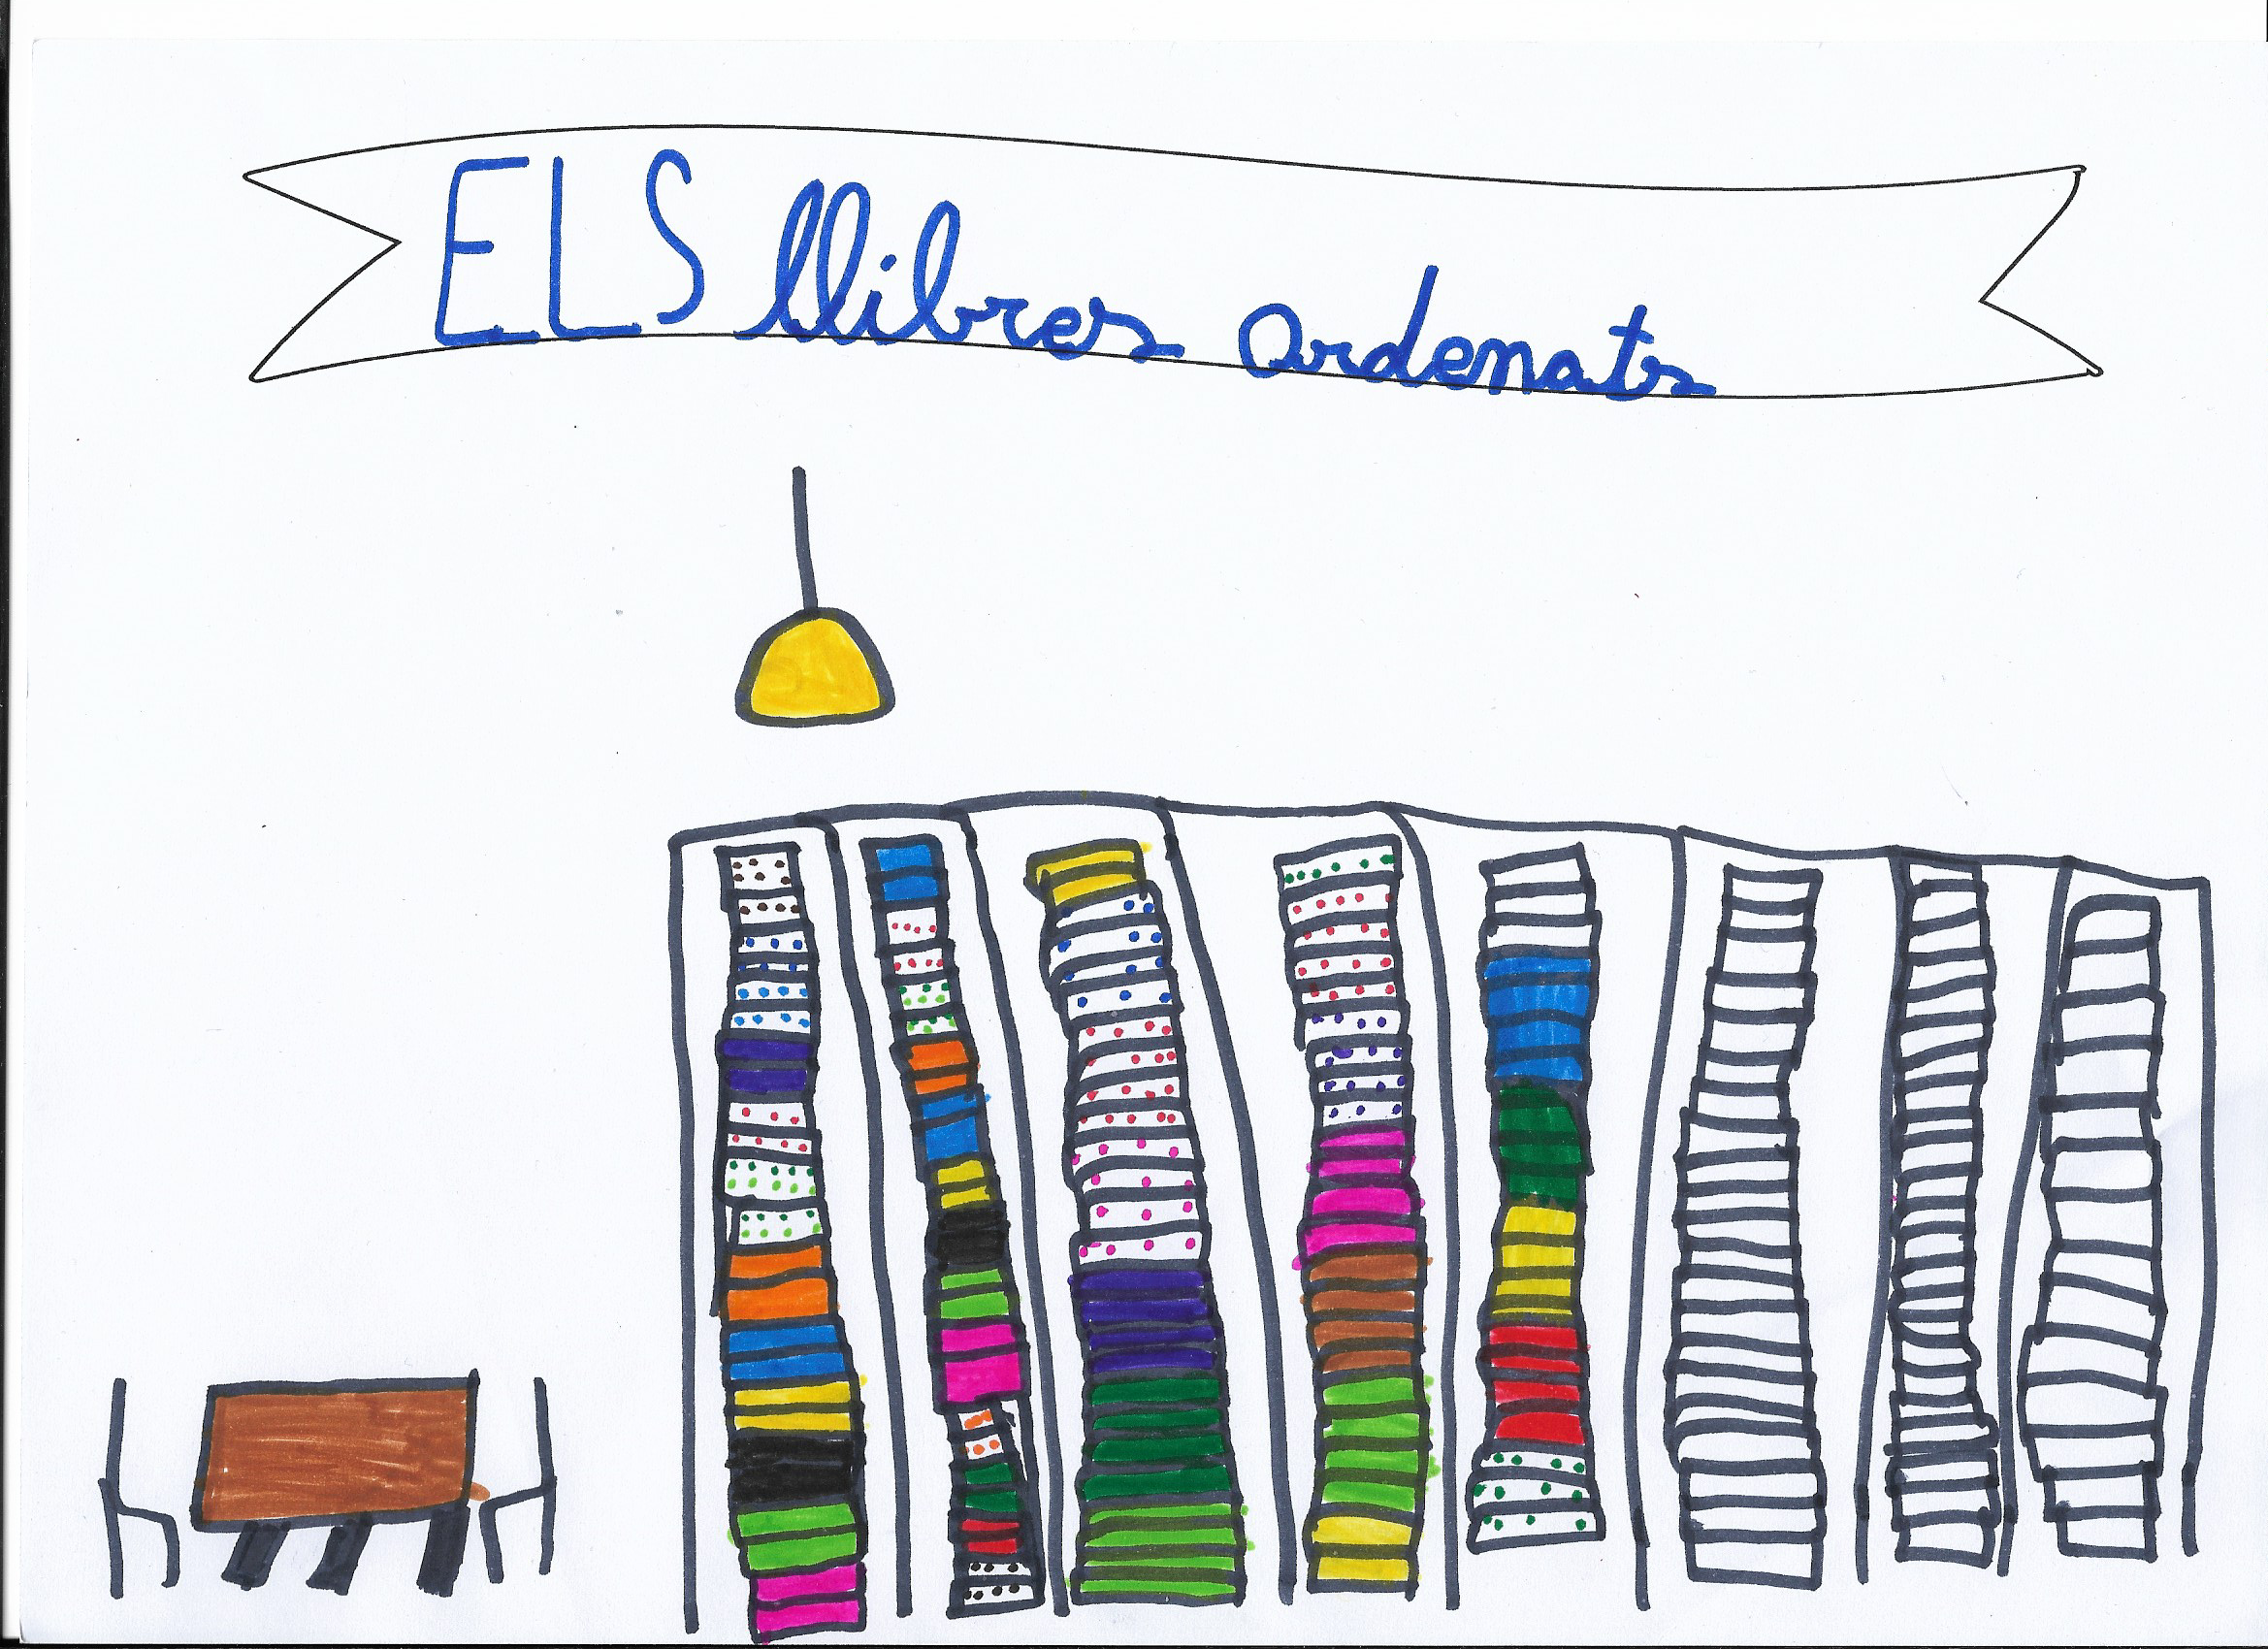 ELS llibres ordenats